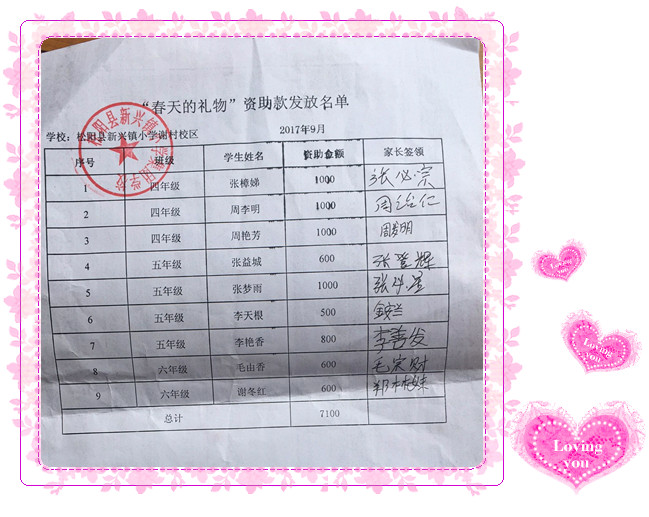 “春天的礼物”资助款发放名单
学校：松阳县新兴镇小学谢村校区 2017年9月
序号 班级 学生姓名 资助金额 家长签领
1 四年级 张樟娣 1000 张必宗
2 四年级 周李明 1000 周治仁
3 四年级 周艳芳 1000
4 五年级 张益城 600 张登辉
5 五年级 张梦雨 1000
6 五年级 李天根 500
7 五年级 李艳香 800 李善发
8 六年级 毛由香 600 毛宗财
9 六年级 谢冬红 600
总计 7100
Loving
you
Loving
you
Loving
you